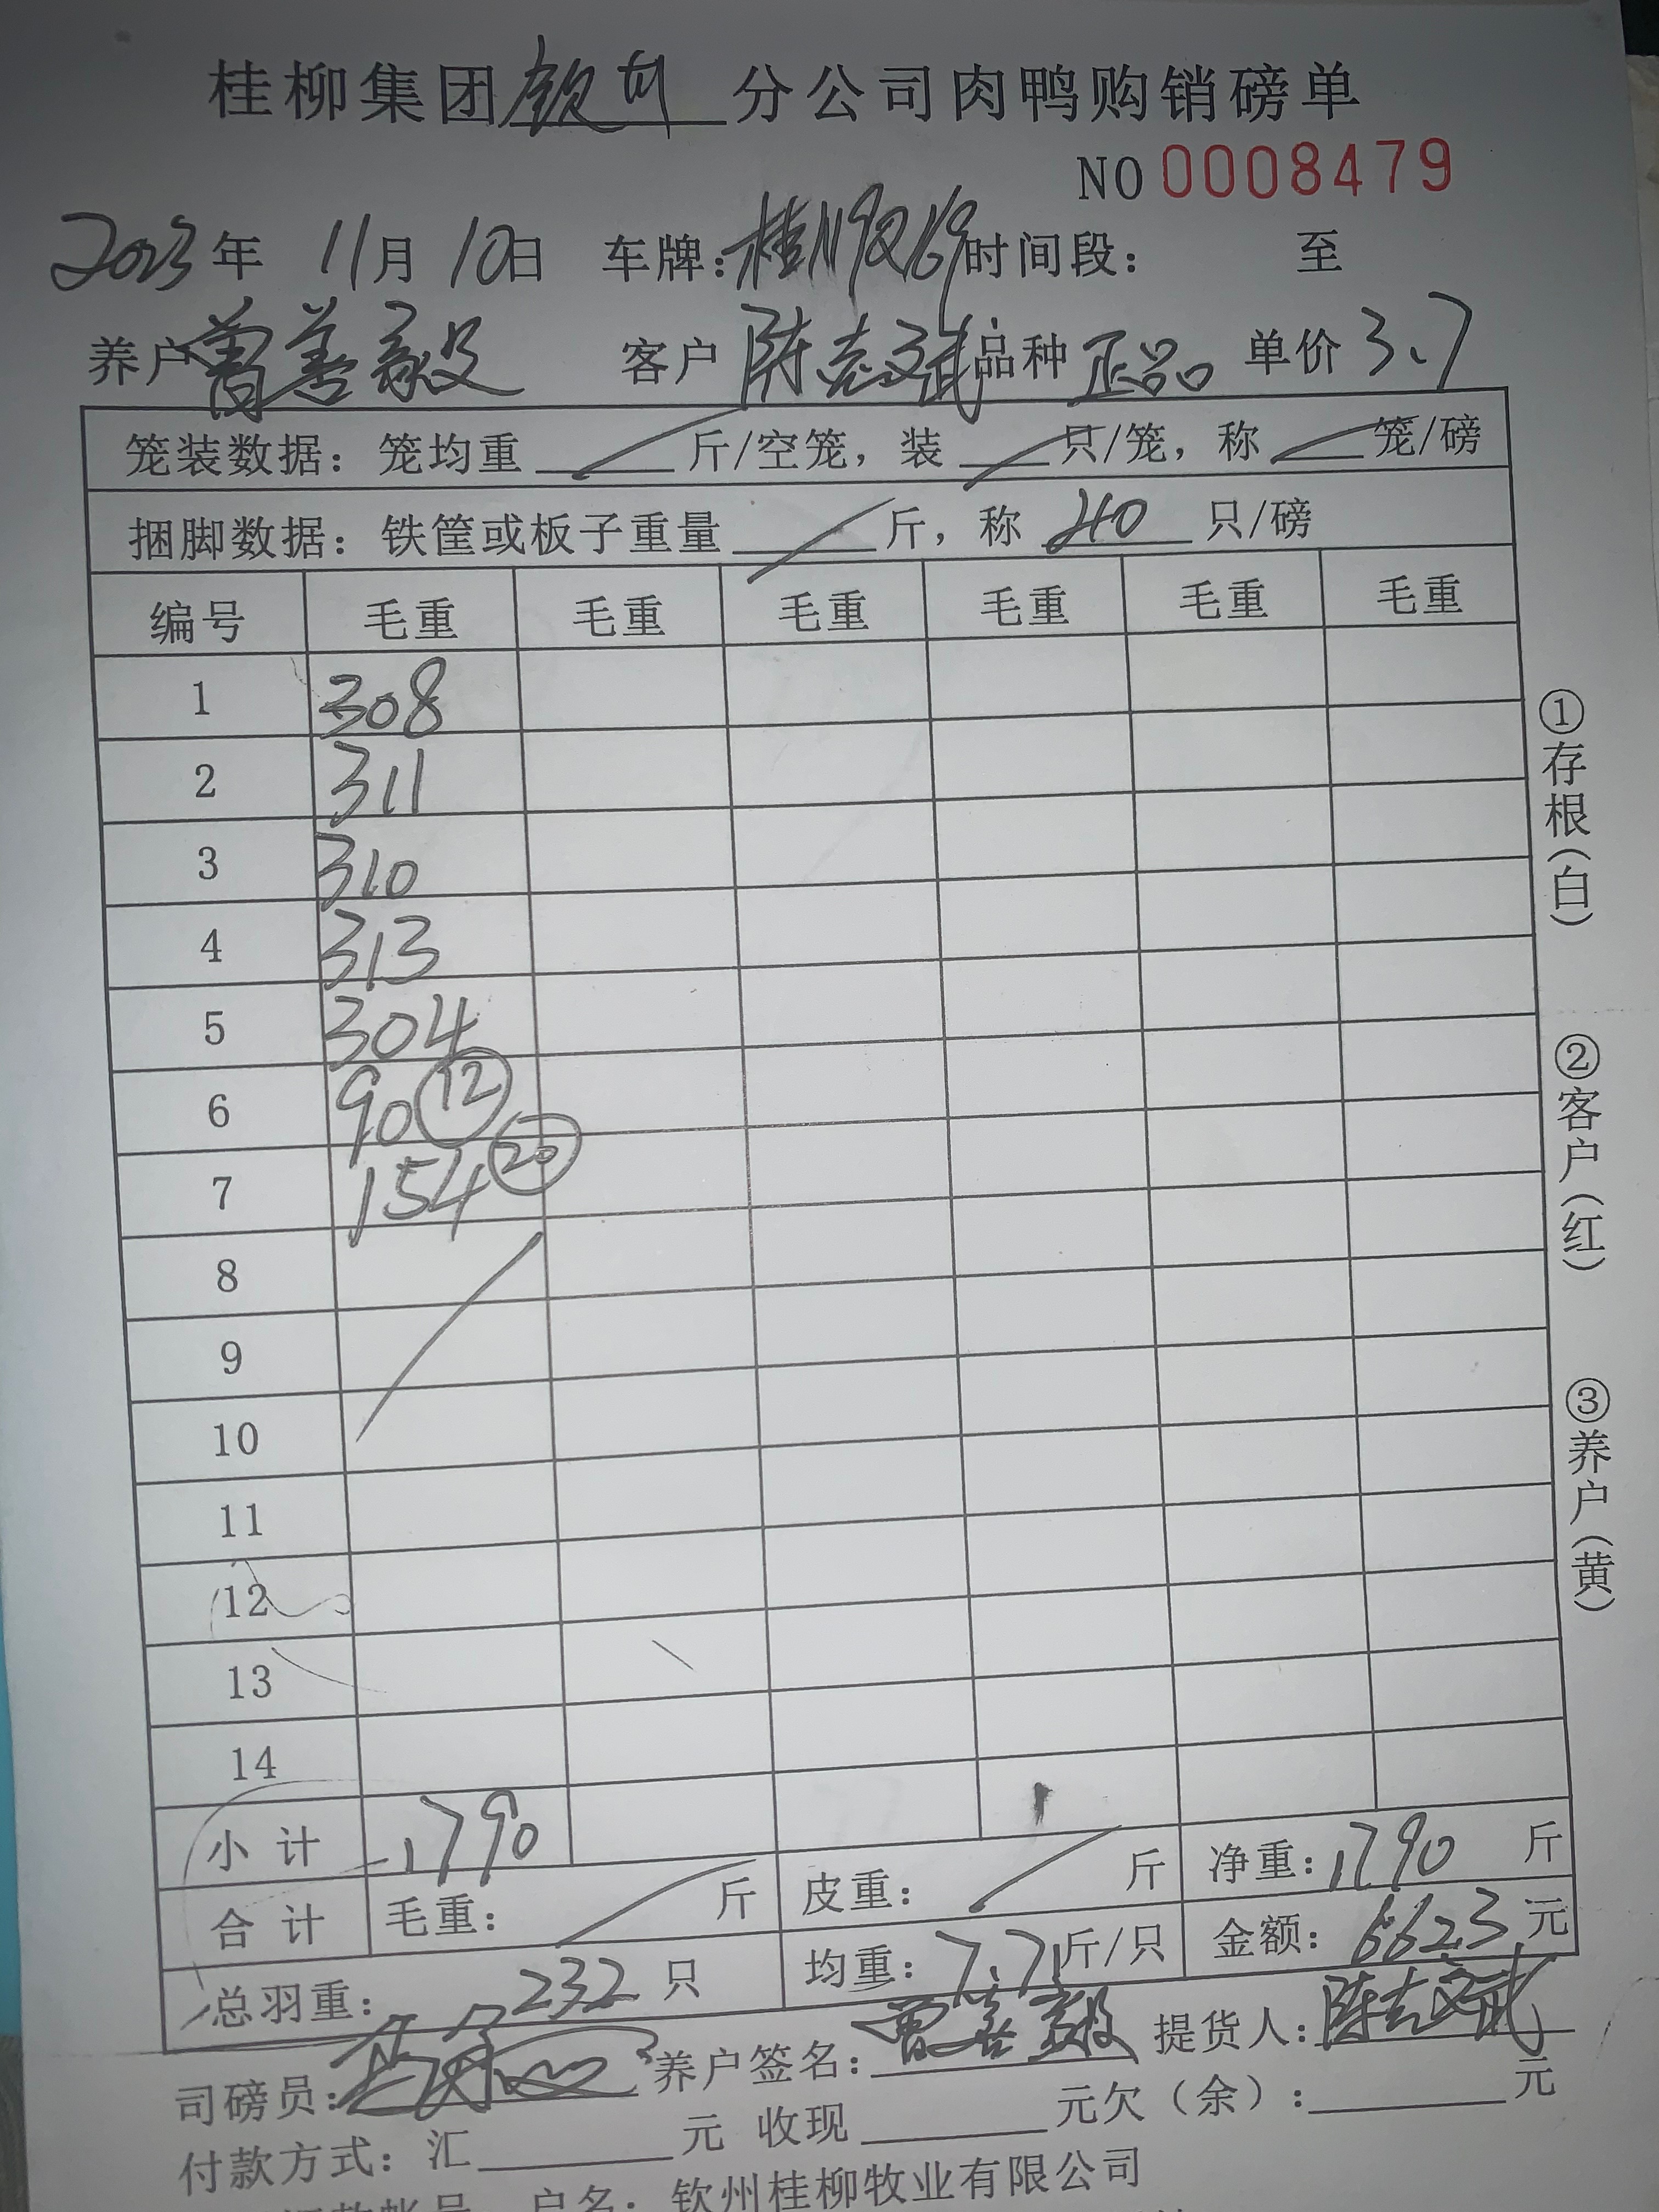 桂柳集团钦州分公司肉鸭购销磅单
NO 0008479
2023年 11月 10日 车牌: 时间段: 至
养户 曾善毅 客户 陈志斌 品种 正品 单价 3.7
笼装数据: 笼均重 斤/空笼, 装 只/笼, 称 笼/磅
捆脚数据: 铁筐或板子重量 斤, 称 40 只/磅
编号 毛重 毛重 毛重 毛重 毛重 毛重
1 308
2 311
3 310
4 313
5 304
6 90 12
7 154 20
8
9
10
11
12
13
14
小 计 1790
合 计 毛重: 斤 皮重: 斤 净重: 1790 斤
总羽重: 232 只 均重: 7.71 斤/只 金额: 6623 元
司磅员: 养户签名: 曾善毅 提货人: 陈志斌
付款方式: 汇 元 收现 元欠(余): 元
户名: 钦州桂柳牧业有限公司
①存根(白)
②客户(红)
③养户(黄)